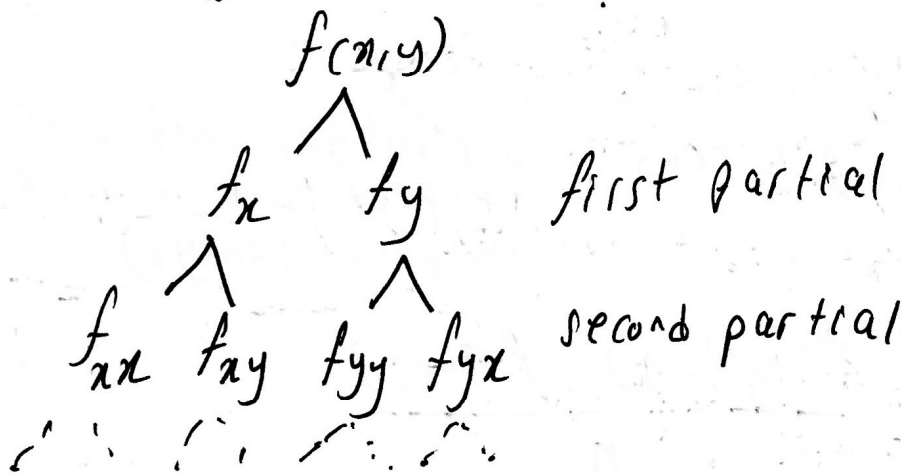 f(x,y)
fx fy first partial
fxx fxy fyy fyx second partial